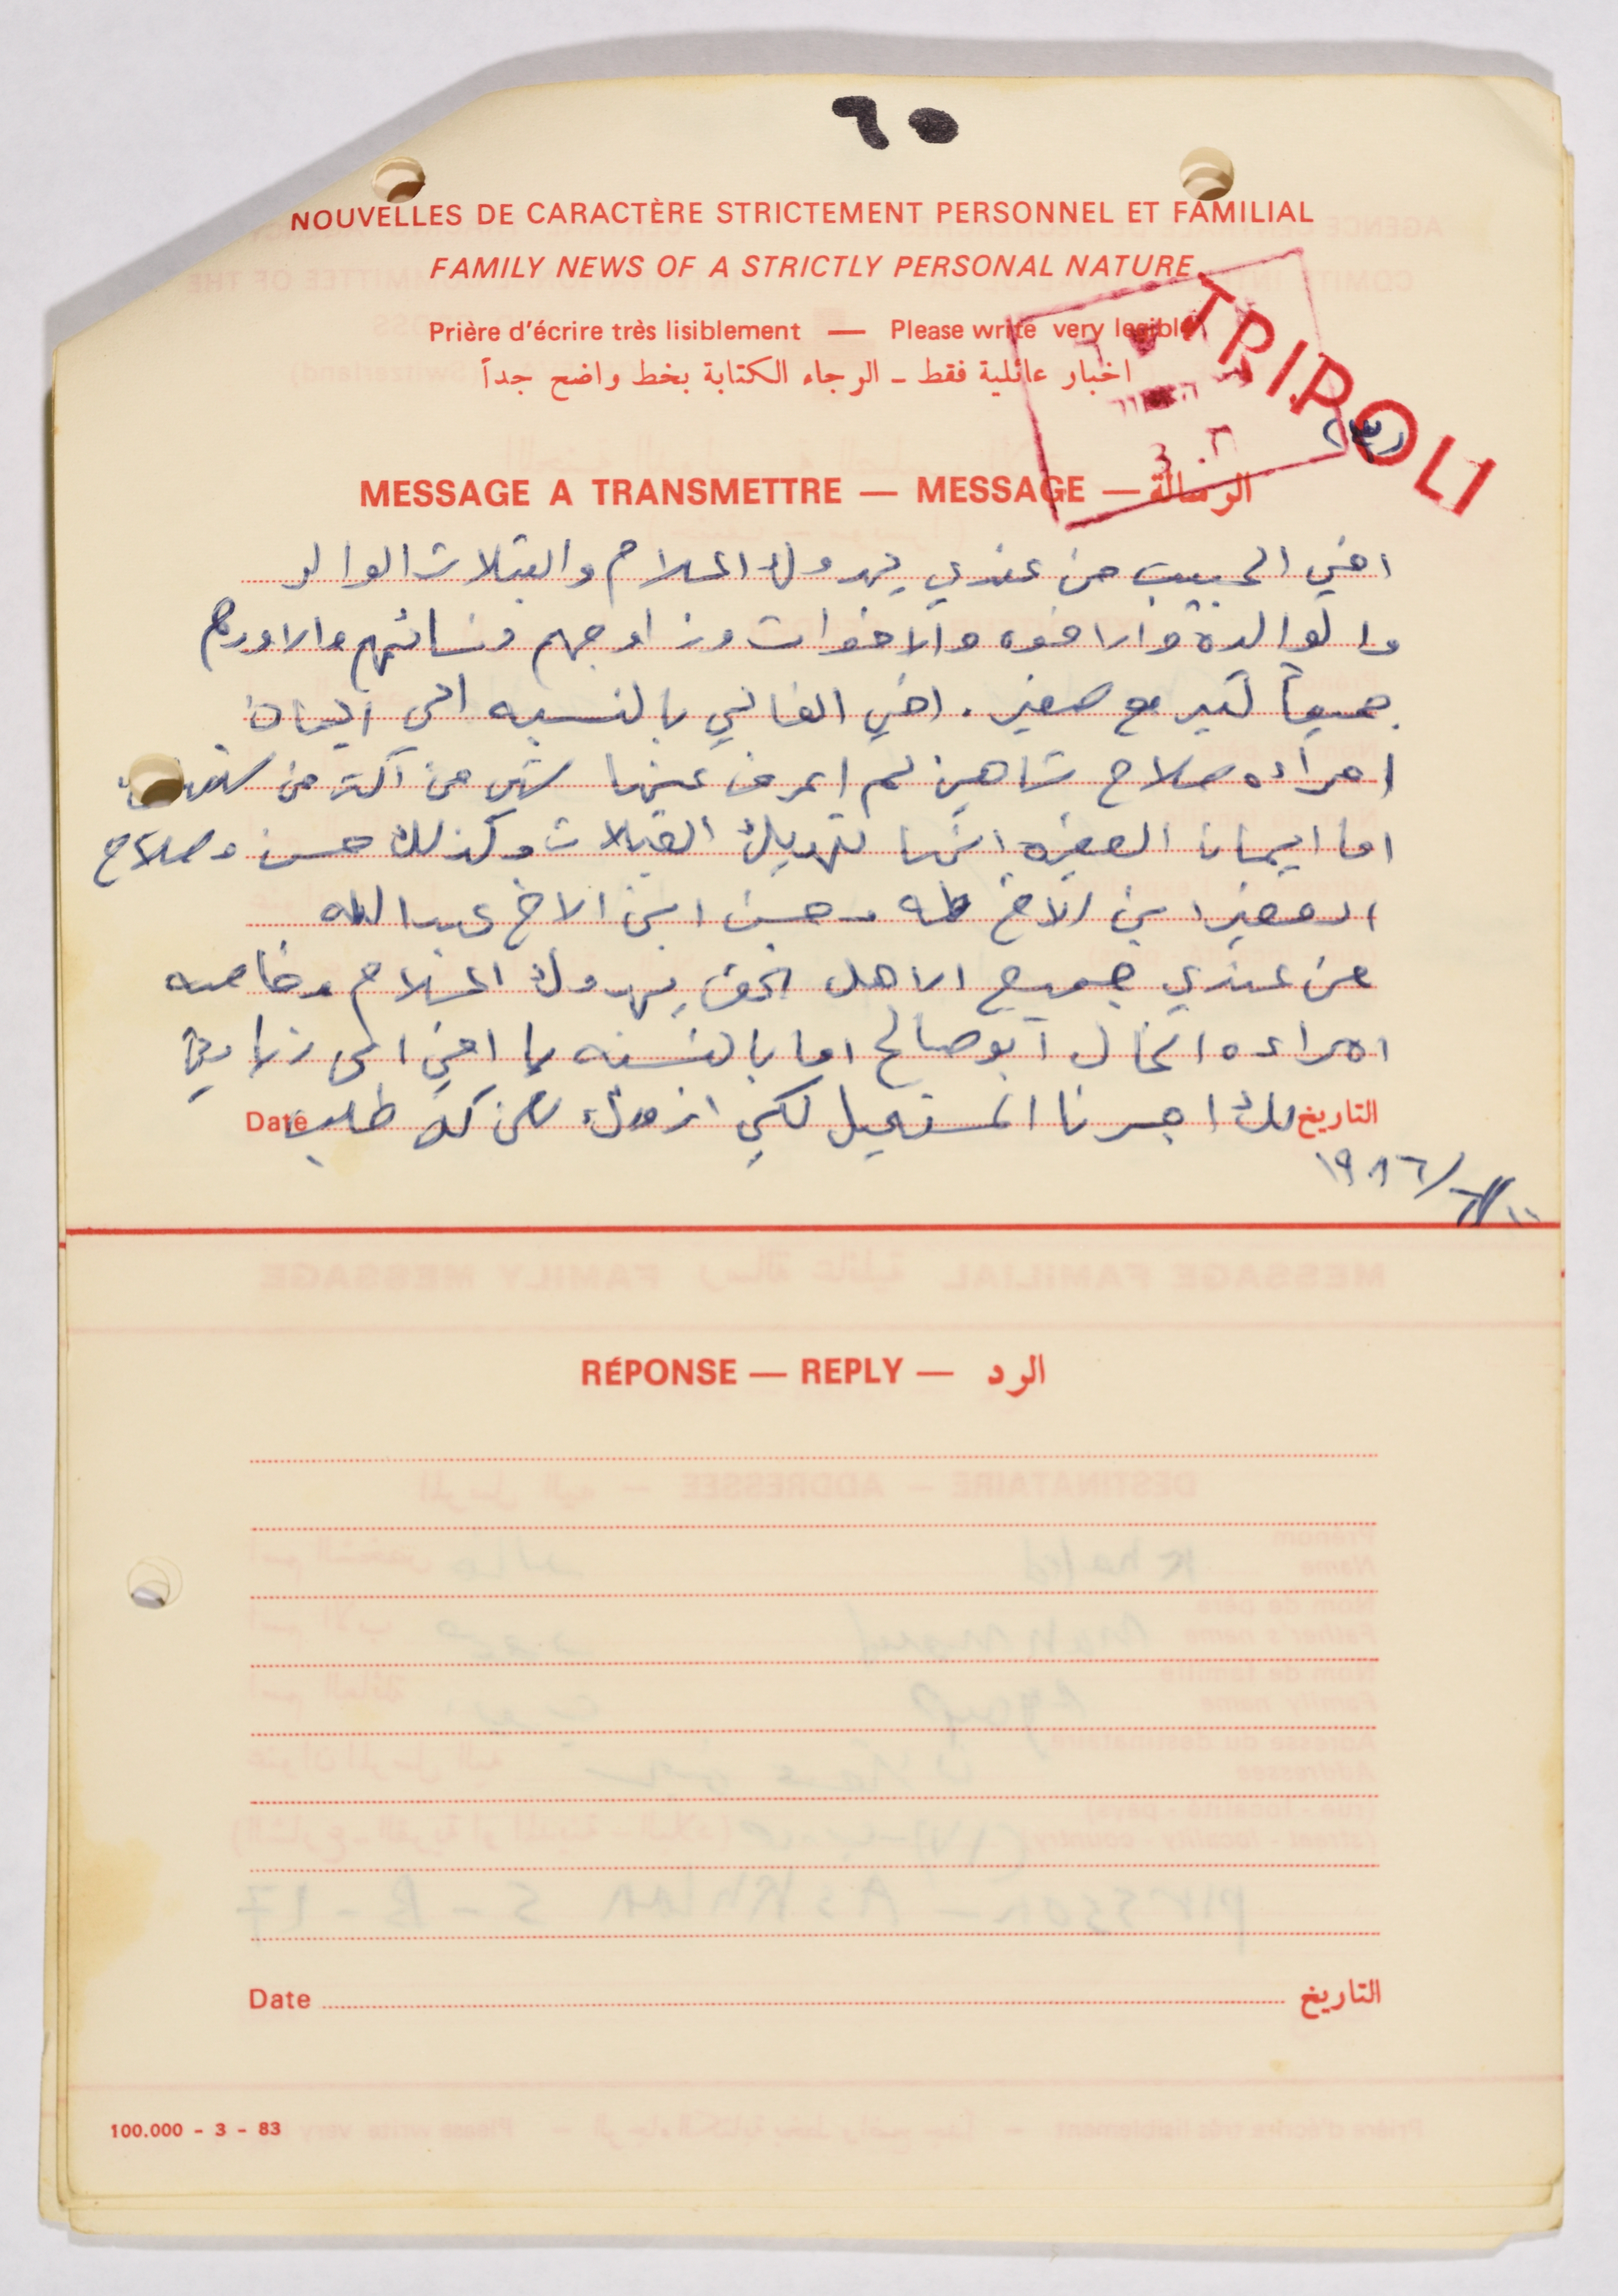 ٦٥
NOUVELLES DE CARACTÈRE STRICTEMENT PERSONNEL ET FAMILIAL
FAMILY NEWS OF A STRICTLY PERSONAL NATURE
Prière d'écrire très lisiblement — Please write very legibly
اخبار عائلية فقط ـ الرجاء الكتابة بخط واضح جداً
TRIPOLI
MESSAGE A TRANSMETTRE — MESSAGE — الرسالة
اخي الحبيب من عندي يهدوك السلام والقبلات الوالد
والوالده والاخوه والاخوات وزاوجهم ونسائهم والاوردهم
جميعاً كبير مع صغير. اخي الغالي بالنسبه الى ايمان
امراءه صلاح شاهين لم اعرف عنها شي من اكثر من
اما ايمانا الصغيره انها تهديك القبلات وكذلك حسن وصلاح
الصغير ابن الاخ طه وحسن ابن الاخ عبدالله
من عندي جميع الاهل يهدوك السلام وخاصه
امراءه الخال ابو صالح اما بالنسبه يا اخي الى زيارتي
لك اجبرنا المستحيل لكي ازورك لكن كل طلب
Date التاريخ
١٩٨٦/٦/١٠
RÉPONSE — REPLY — الرد
Date التاريخ
100.000 - 3 - 83